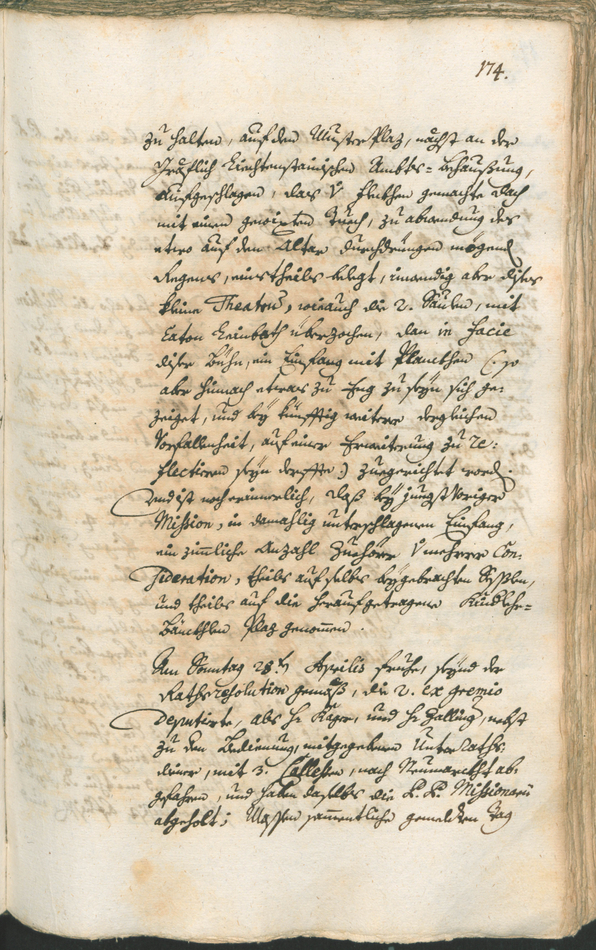 174.
zu halten, auf den Muster Plaz, nächst an der
Gräflich Liechtensteinischen Ambts=Behaußung,
aufgeschlagen, das V gemachte Dach
mit einen gewixten Tuech, zu abwendung des
etwo auf den Altar durchdrüngen mögend
Regens, einstheils belegt, inwendig aber dises
kleine Theatrū, wie auch die 2. Säulen, mit
überzochen, dan in facie
diser Bühn, ein Einfang mit Planckhen (:so
aber hernach etwas zu Eng zu seyn sich ge:
zeiget, und bey künfftig weiterer dergleichen
Vorfallenheit, auf einer Erweiterung zu re:
flectiren seyn derffte:) zuegerichtet word.
und ist noch erinnerlich, daß bey jüngst Voriger
Mission, in damahlig unterschlagenen Einfang,
ein zimbliche Anzahl Zuehörer V mehrerer Con:
sideration, theils auf selbs beygebrachten Sesslen,
und theils auf die heraufgetragene Kindslehr=
Bänckhlen Plaz genommen.
Am Sonntag 28.ten Aprilis fruhe, seynd der
Rathsresolution gemäß, die 2. ex gremio
Deputirte, als Hr. Kager, und Hr. Zalling, nebst
zu den Bedienung, mitgegebenen Unter Raths
diener, mit 3. Callessen, nach Neumarckht ab:
gefahren, und haben daselbs die P.P. Missionarii
abgeholt; Massen sammentliche gemeldten Tag